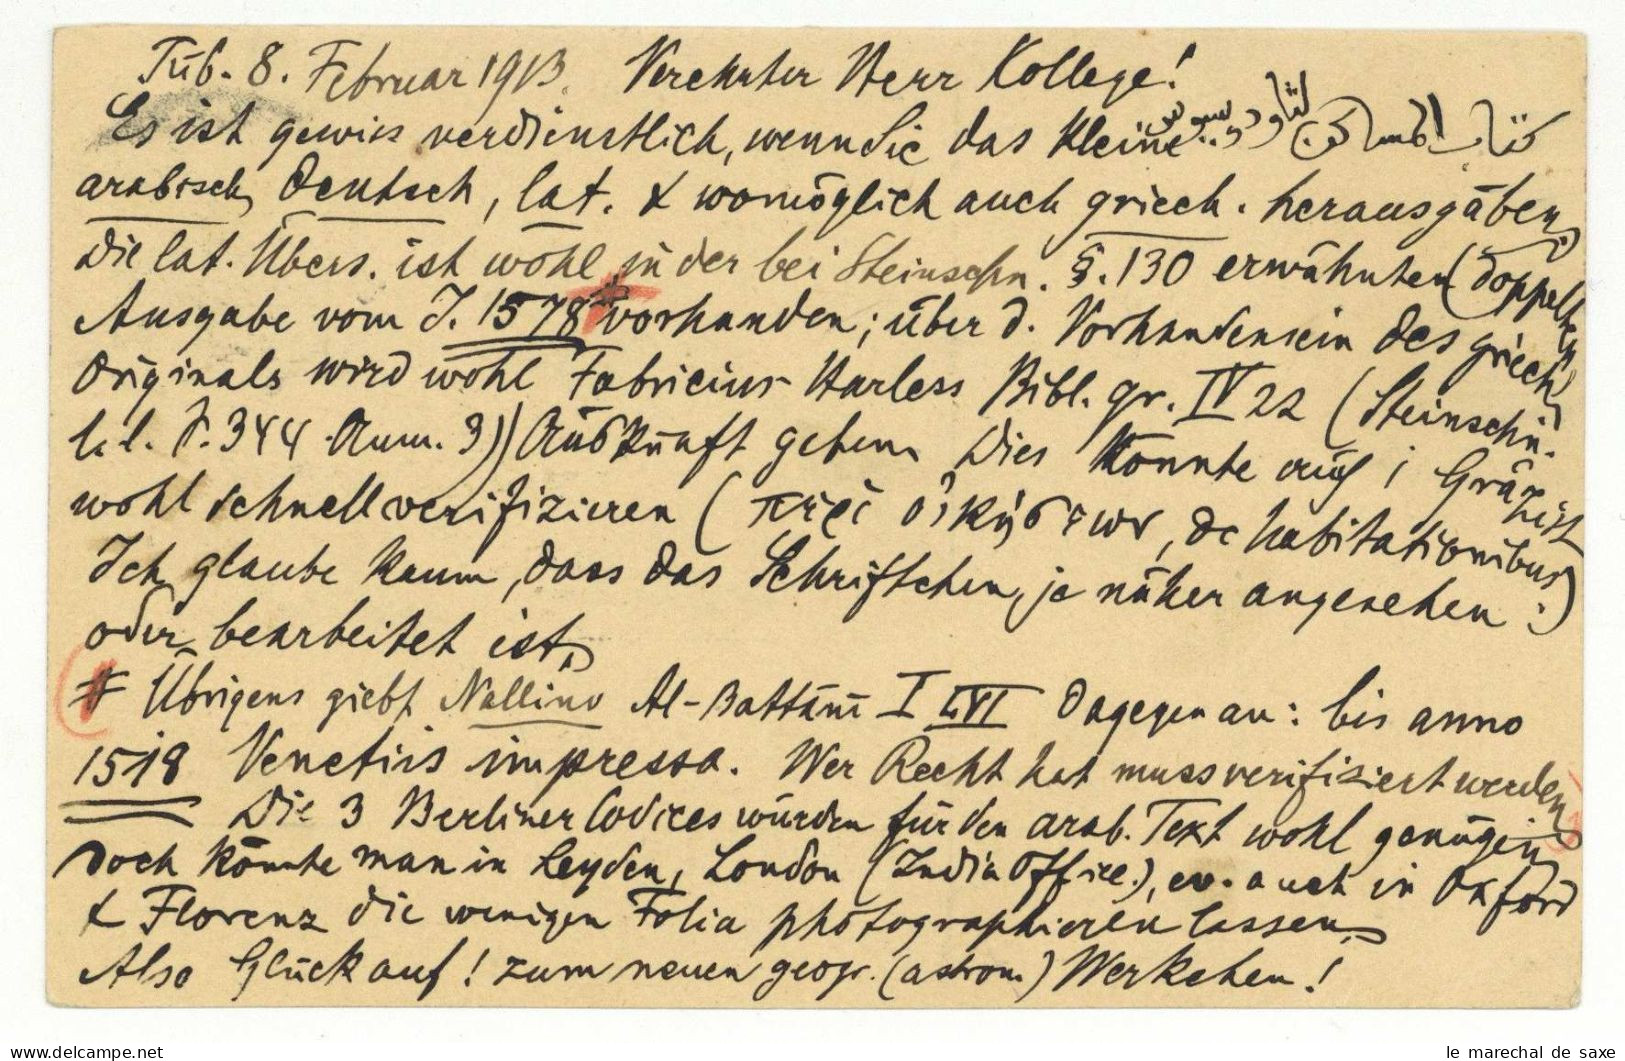 Tüb. 8. Februar 1913. Verehrter Herr Kollege!
Es ist gewiss verdienstlich, wenn Sie das kleine كتاب المساكن لثاودوسيوس
arabisch, deutsch, lat. & womöglich auch griech. herausgäben.
Die lat. Übers. ist wohl in der bei Steinschn. §. 130 erwähnten (doppelten)
Ausgabe vom J. 1578 # vorhanden; über d. Vorhandensein des griech.
Originals wird wohl Fabricius-Harless Bibl. gr. IV 22 (Steinschn.
l. l. S. 344 Anm. 3)) Auskunft geben. Dies könnte auch i Gräzist
wohl schnell verifizieren (περὶ οἰκήσεων, de habitationibus)
Ich glaube kaum, dass das Schriftchen, je näher angesehen
oder bearbeitet ist.
# Übrigens giebt Nallino Al-Battānī I LVI dagegen an: bis anno
1518 Venetiis impressa. Wer Recht hat muss verifiziert werden
Die 3 Berliner Codices würden für den arab. Text wohl genügen
doch könnte man in Leyden, London (India Office), ev. auch in Oxford
& Florenz die wenigen Folia photographieren lassen.
Also Glück auf! zum neuen geogr. (astron.) Werkchen!
le marechal de saxe